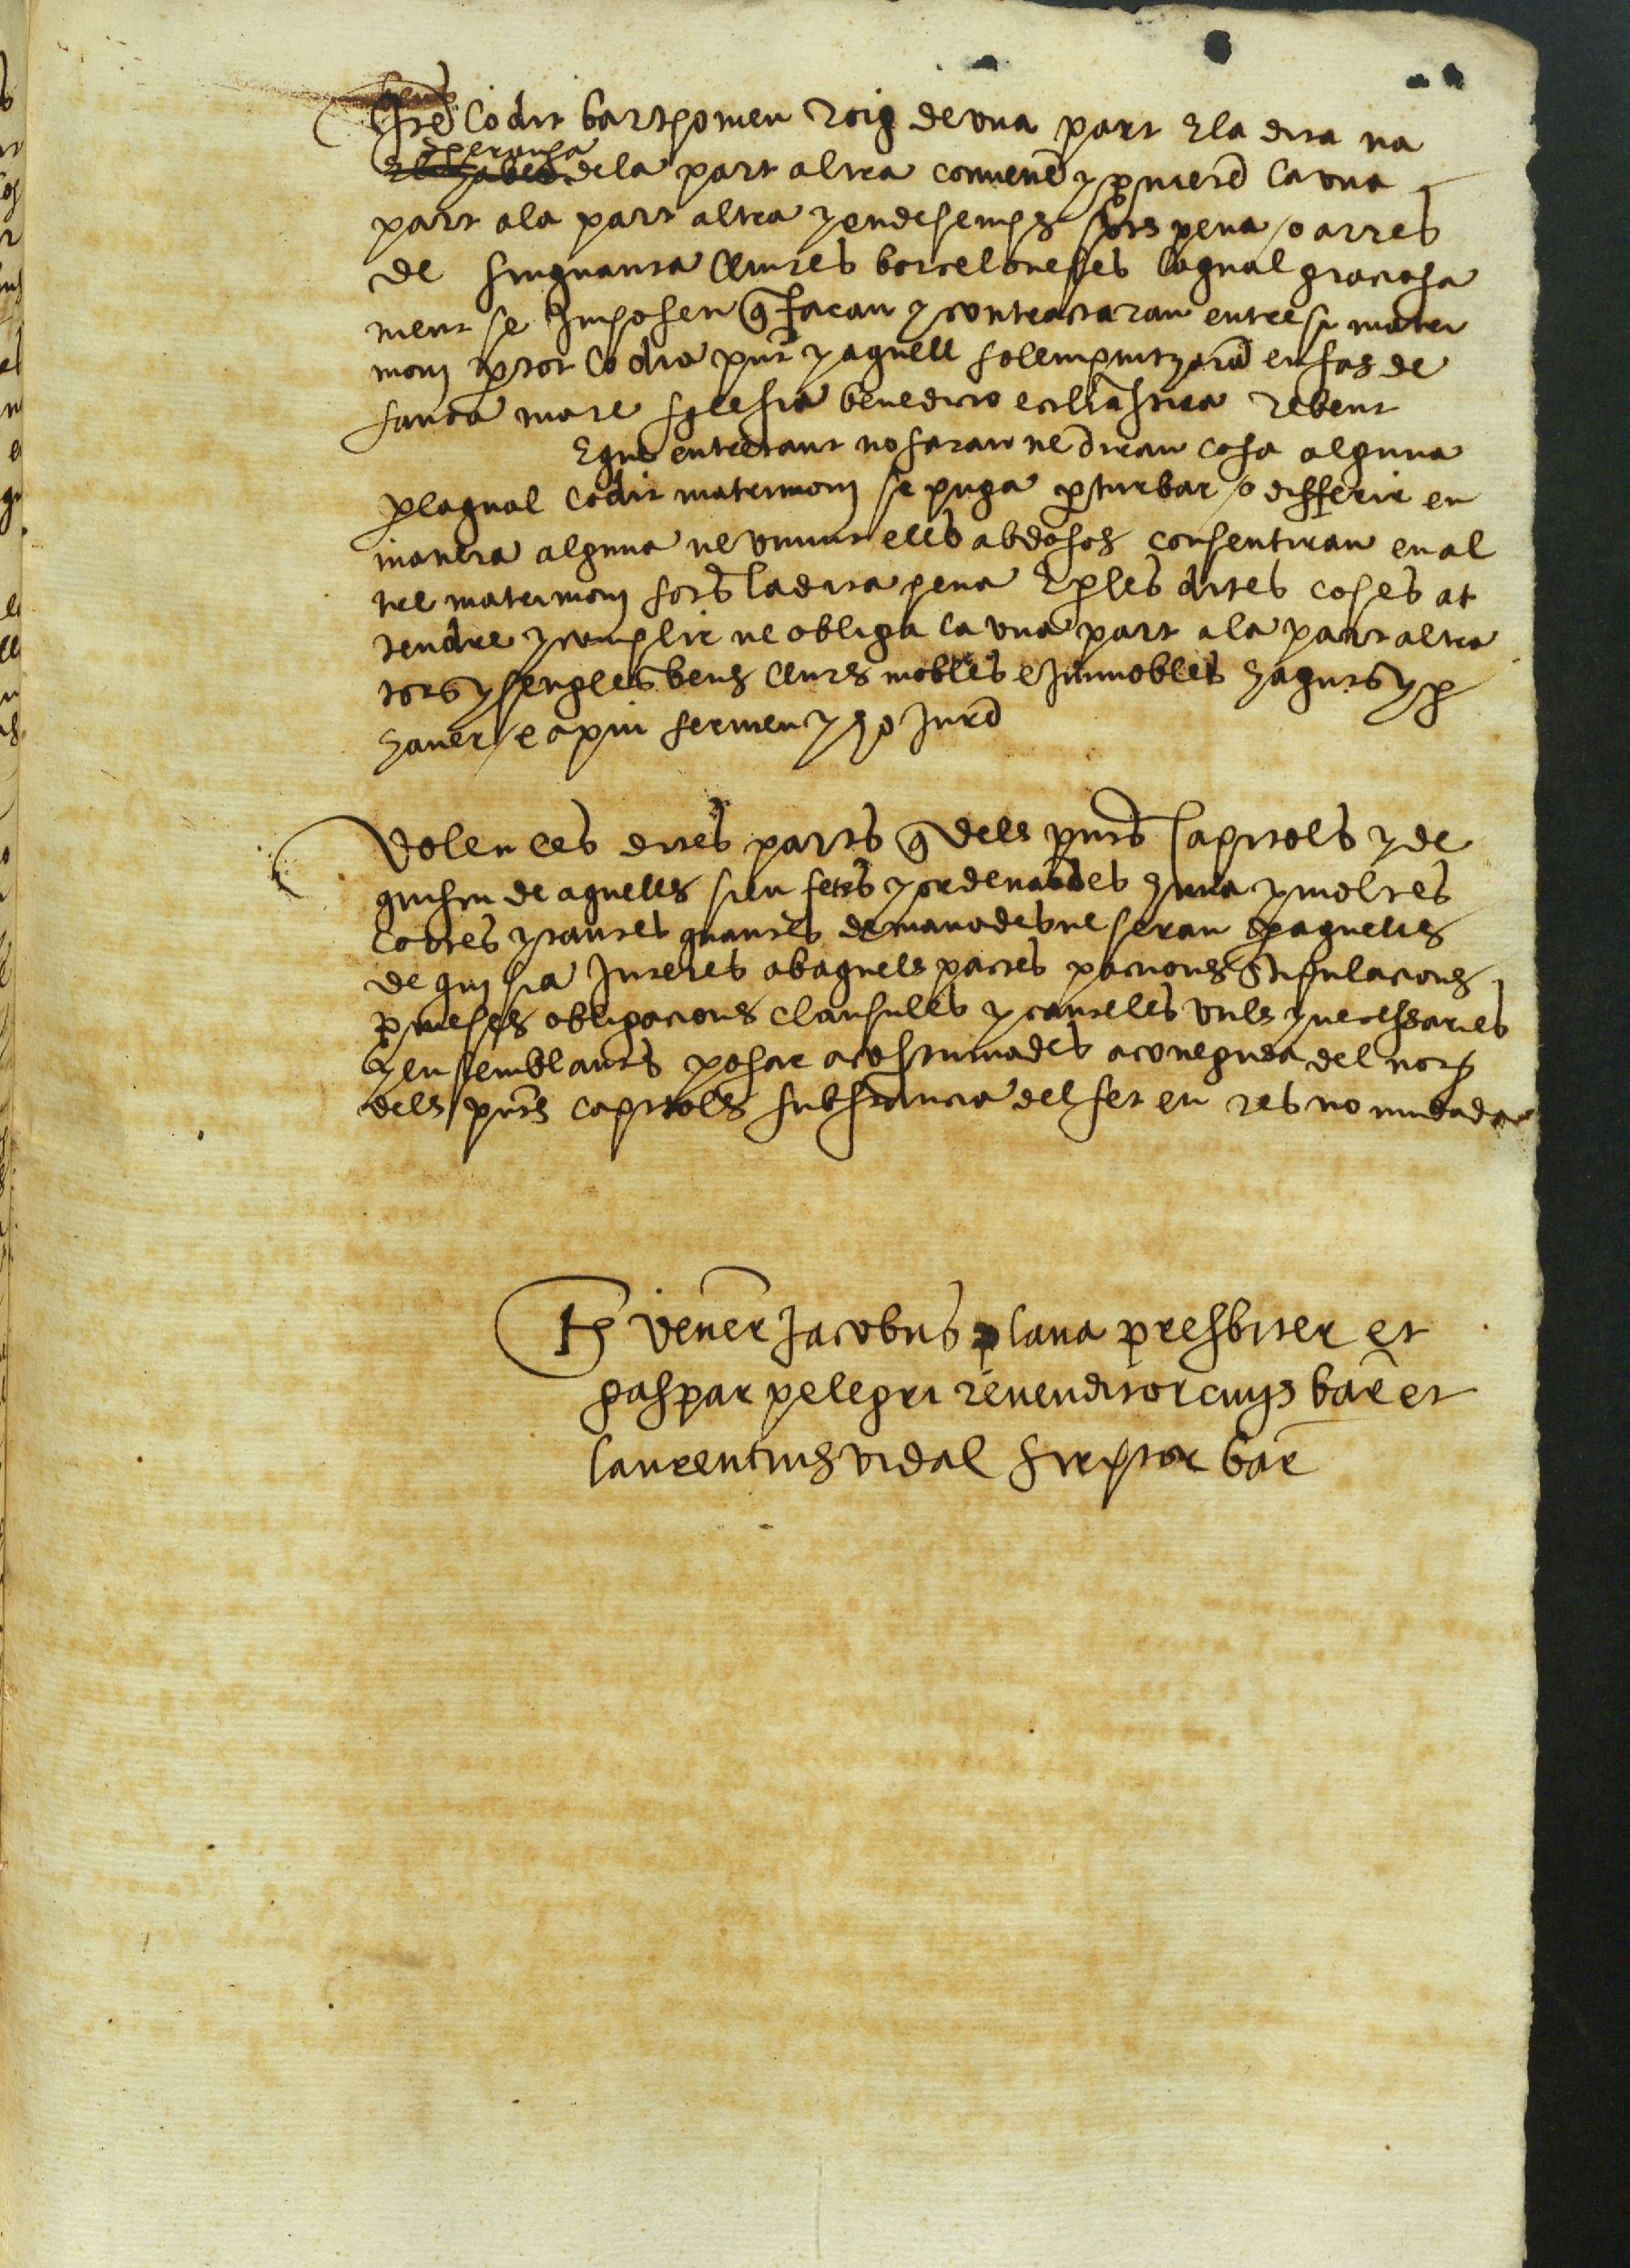 Itē lo dit barthomeu Roig de una part E la dita na
speransa
Elizabet de la part altra convenē y ꝓmetē la una
part a la part altra y endesemps sots pena o arres
de sinquanta lliures barceloneses la qual graciosa
ment se Imposen q̄ faran y contractaran entre si matri
moni ꝑ tot lo dia pn̄t y aquell solempnitzarā en fas de
santa mare sglesia benedictio ecclīastica rebent
E que entretant no faran ne diran cosa alguna
ꝑ la qual lo dit matrimoni se puga ꝑturbar o differir en
manera alguna ne vivint ells abdosos consentiran en al
tre matrimoni sots la dita pena E ꝑ les dites coses at
tendre y complir ne obliga la una part a la part altra
tots y sengles bens llurs mobles e Immobles haguts y ꝑ
haver e a fermen y Jurē
Volen les dites parts q̄ dels pn̄ts Capitols y de
quiscu de aquells sien fetes y ordenades huna y moltes
cartes y tantes quantes demanades ne seran ꝑ aquells
de qui sia Interes ab aquels pactes pactions stipulacions
ꝓmeses obligacions clausules y cauteles utils y necessaries
y en semblants posar acostumades a coneguda del noͭ
dels pn̄ts capitols substancia del fet en res no mudada
Tˢ vener̄ Jacobus plana presbiter et
gaspar pelegri revenditor civis bar̄ et
laurentius vidal scriptor bar̄